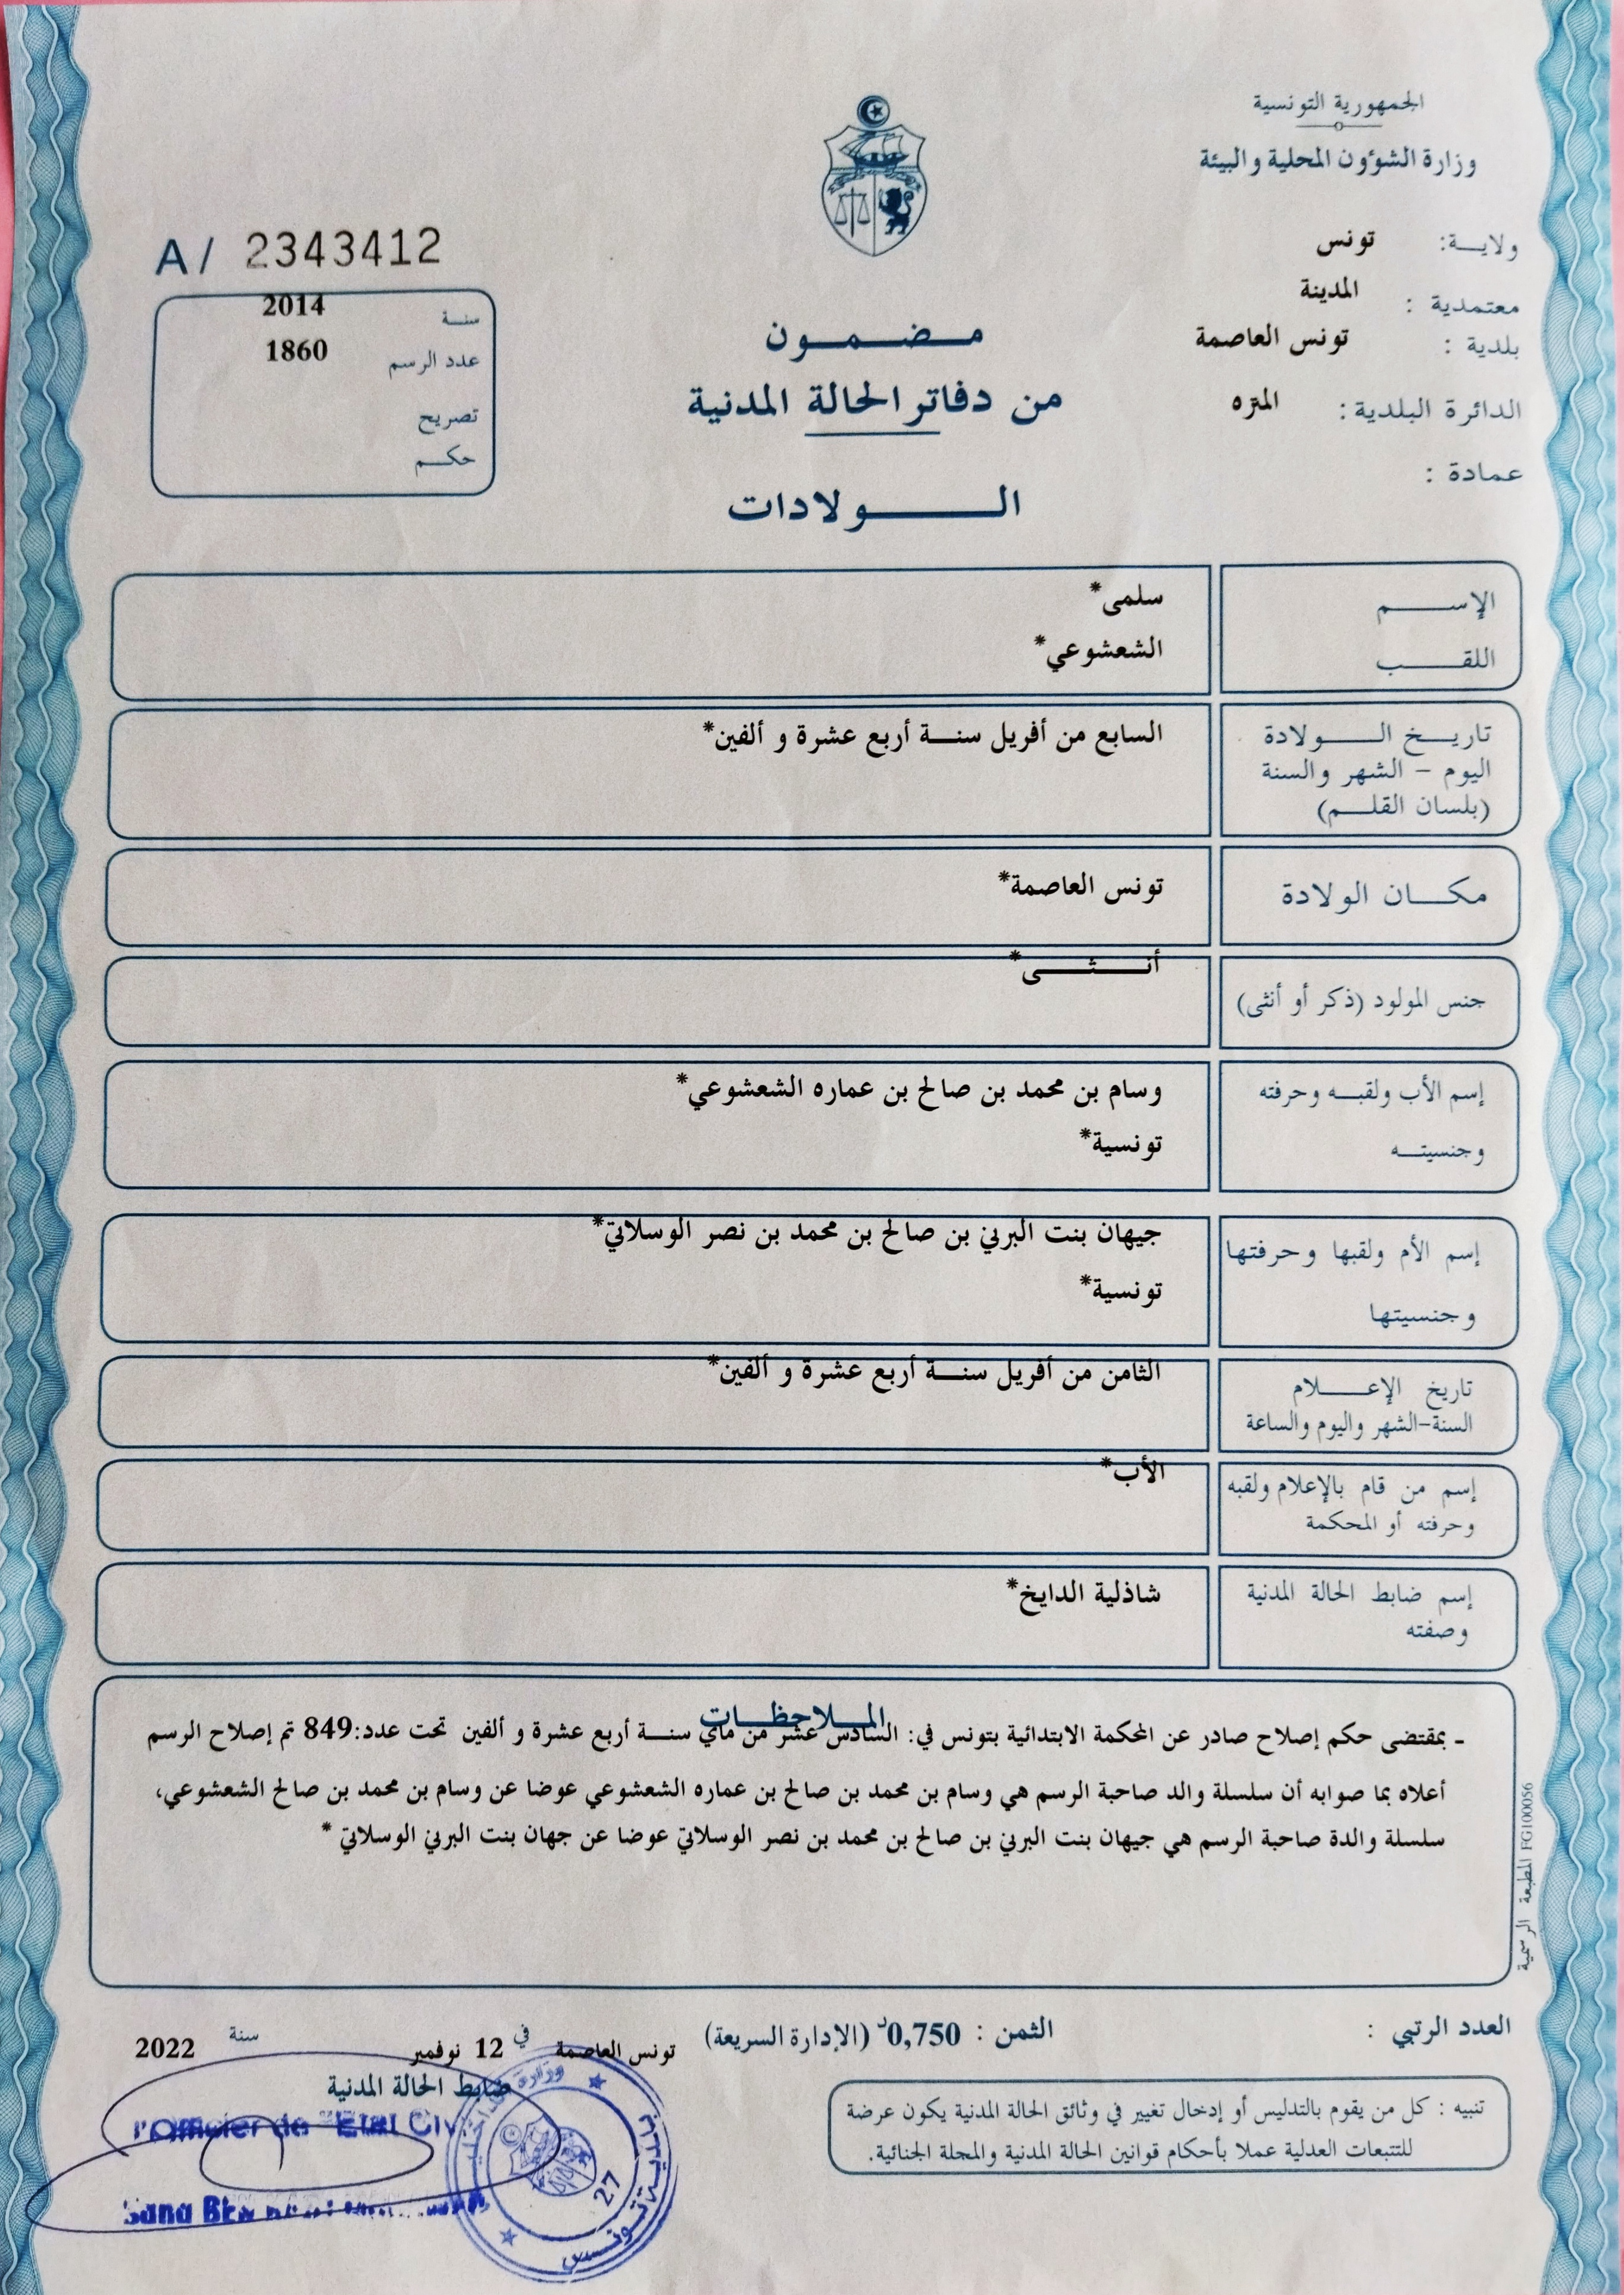 الجمهورية التونسية
وزارة الشؤون المحلية والبيئة
ولايــة: تونس
معتمدية : المدينة
بلدية : تونس العاصمة
الدائرة البلدية: المتره
عمادة :
A/ 2343412
سنة 2014
عدد الرسم 1860
تصريح
حكم
مـضـمـون
من دفاتر الحالة المدنية
الــولادات
الإســم سلمى*
اللقــب الشعشوعي*
تاريــخ الــولادة السابع من أفريل سنــة أربع عشرة و ألفين*
اليوم – الشهر والسنة
(بلسان القلــم)
مكــان الولادة تونس العاصمة*
جنس المولود (ذكر أو أنثى) أنــثــى*
إسم الأب ولقبــه وحرفته وسام بن محمد بن صالح بن عماره الشعشوعي*
وجنسيتــه تونسية*
إسم الأم ولقبها وحرفتها جيهان بنت البرني بن صالح بن محمد بن نصر الوسلاتي*
وجنسيتها تونسية*
تاريخ الإعــلام الثامن من أفريل سنــة أربع عشرة و ألفين*
السنة-الشهر واليوم والساعة
إسم من قام بالإعلام ولقبه الأب*
وحرفته أو المحكمة
إسم ضابط الحالة المدنية شاذلية الدايخ*
وصفته
الملاحظــات
- بمقتضى حكم إصلاح صادر عن المحكمة الابتدائية بتونس في: السادس عشر من ماي سنــة أربع عشرة و ألفين تحت عدد:849 تم إصلاح الرسم
أعلاه بما صوابه أن سلسلة والد صاحبة الرسم هي وسام بن محمد بن صالح بن عماره الشعشوعي عوضا عن وسام بن محمد بن صالح الشعشوعي،
سلسلة والدة صاحبة الرسم هي جيهان بنت البرني بن صالح بن محمد بن نصر الوسلاتي عوضا عن جهان بنت البرني الوسلاتي *
المطبعة الرسمية FG100056
العدد الرتبي :
الثمن : 0,750د (الإدارة السريعة)
تونس العاصمة في 12 نوفمبر سنة 2022
ضابط الحالة المدنية
l'Officier de Etat Civ
Sana
بلدية تونس
27
تنبيه : كل من يقوم بالتدليس أو إدخال تغيير في وثائق الحالة المدنية يكون عرضة
للتتبعات العدلية عملا بأحكام قوانين الحالة المدنية والمجلة الجنائية.